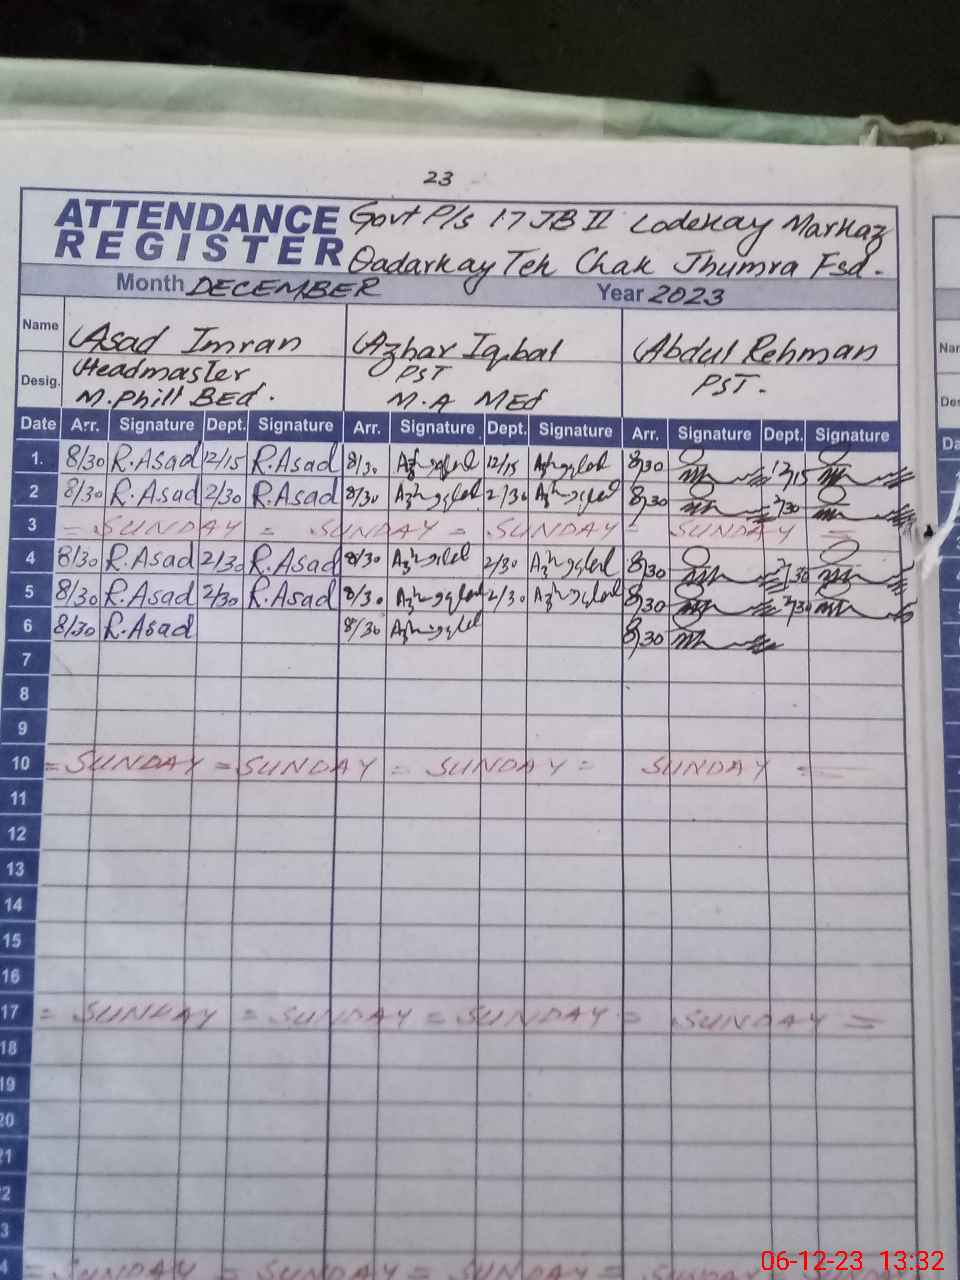 23
ATTENDANCE REGISTER
Govt P/s 17 JB II Lodekay Markaz
Qadarkay Teh Chak Jhumra Fsd.
Month DECEMBER Year 2023
Name Asad Imran Azhar Iqbal Abdul Rehman
Desig. Headmaster PST PST.
M.Phill BEd. M.A MEd
Date Arr. Signature Dept. Signature Arr. Signature Dept. Signature Arr. Signature Dept. Signature
1. 8/30 R.Asad 12/15 R.Asad 8/30 12/15 8/30 12/15
2 8/30 R.Asad 2/30 R.Asad 8/30 2/30 8/30 2/30
3 = SUNDAY = SUNDAY = SUNDAY = SUNDAY =
4 8/30 R.Asad 2/30 R.Asad 8/30 2/30 8/30 2/30
5 8/30 R.Asad 2/30 R.Asad 8/30 2/30 8/30 2/30
6 8/30 R.Asad 8/30 8/30
7
8
9
10 = SUNDAY = SUNDAY = SUNDAY = SUNDAY =
11
12
13
14
15
16
17 = SUNDAY = SUNDAY = SUNDAY = SUNDAY =
18
19
20
21
2
3
4 = SUNDAY = SUNDAY = SUNDAY = SUNDAY
Nar
Des
Da
06-12-23 13:32